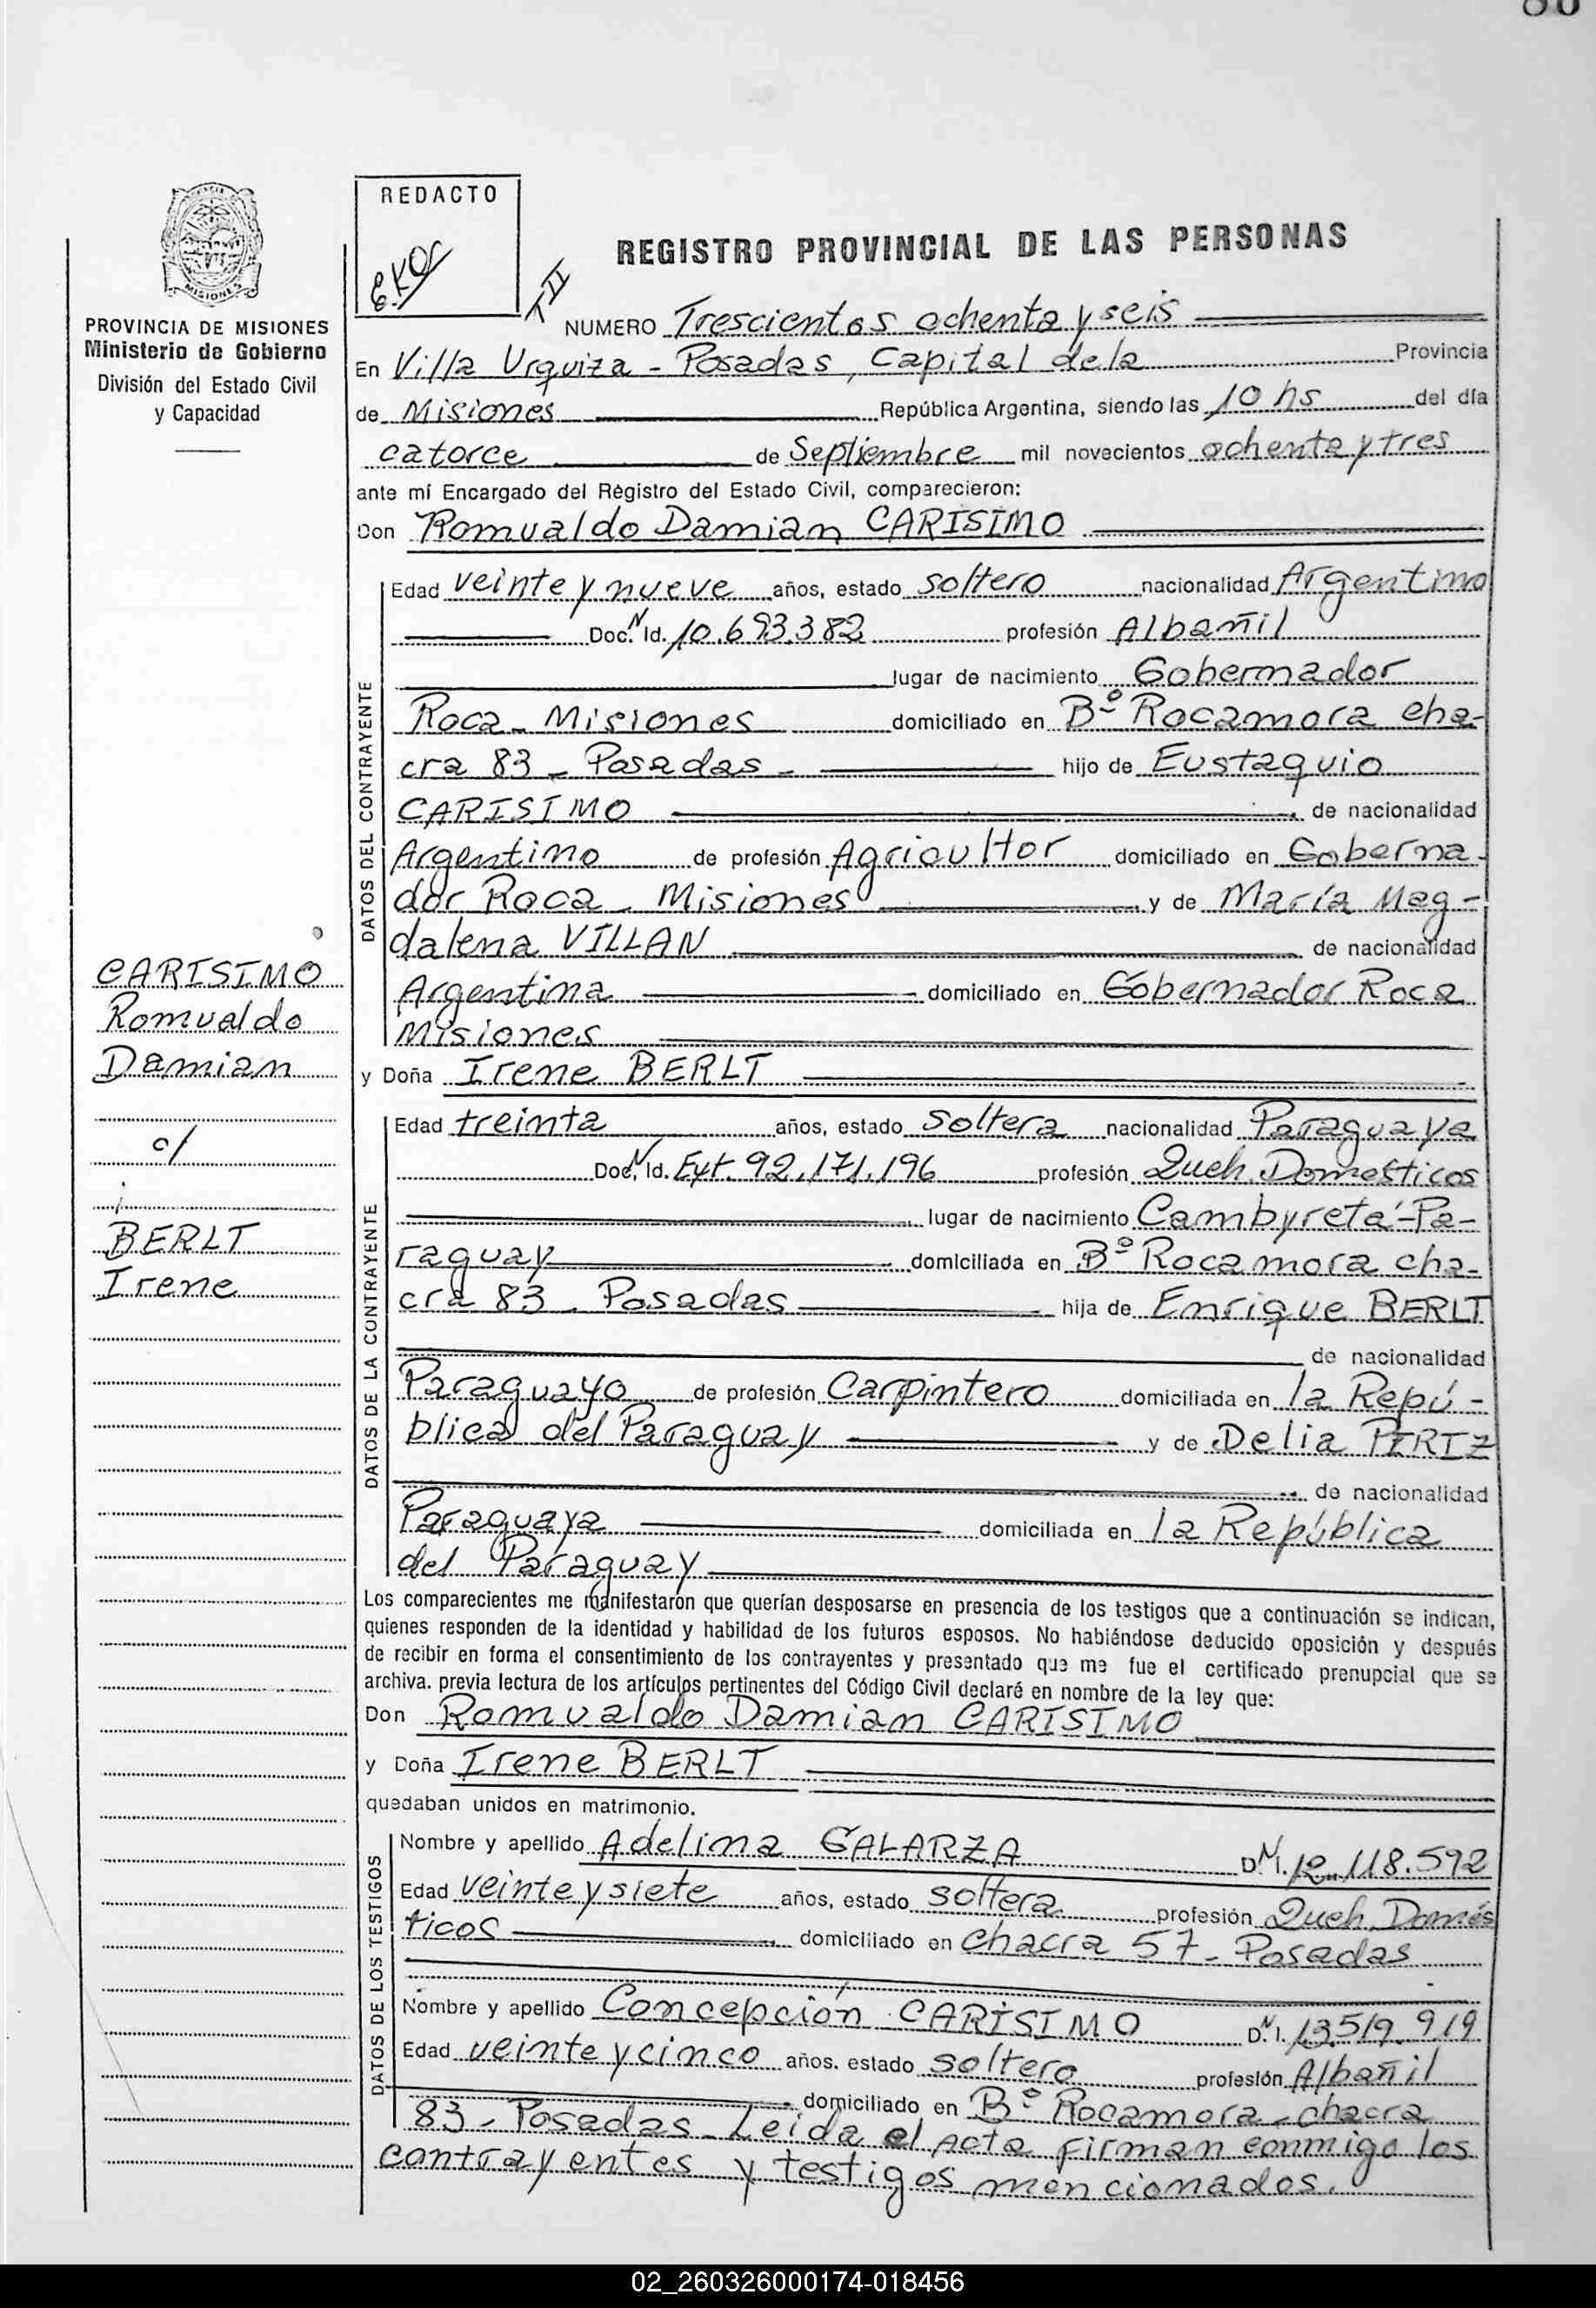 86
MISIONES
PROVINCIA DE MISIONES
Ministerio de Gobierno
División del Estado Civil
y Capacidad
REDACTO
REGISTRO PROVINCIAL DE LAS PERSONAS
T II
NUMERO Trescientos ochenta y seis
En Villa Urquiza - Posadas, Capital de la Provincia
de Misiones República Argentina, siendo las 10 hs del día
catorce de Septiembre mil novecientos ochenta y tres
ante mí Encargado del Régistro del Estado Civil, comparecieron:
Don Romualdo Damian CARISIMO
DATOS DEL CONTRAYENTE
Edad veinte y nueve años, estado soltero nacionalidad Argentino
Doc. N Id. 10.693.382 profesión Albañil
lugar de nacimiento Gobernador
Roca - Misiones domiciliado en Bº Rocamora cha-
cra 83 - Posadas - hijo de Eustaquio
CARISIMO de nacionalidad
Argentino de profesión Agricultor domiciliado en Goberna-
dor Roca - Misiones y de María Mag-
dalena VILLAN de nacionalidad
Argentina domiciliado en Gobernador Roca
Misiones
CARISIMO
Romualdo
Damian
c/
BERLT
Irene
y Doña Irene BERLT
DATOS DE LA CONTRAYENTE
Edad treinta años, estado soltera nacionalidad Paraguaya
Doc. N Id. Ext. 92.171.196 profesión Queh. Domesticos
lugar de nacimiento Cambyretá-Pa-
raguay domiciliada en Bº Rocamora cha-
cra 83 - Posadas hija de Enrique BERLT
de nacionalidad
Paraguayo de profesión Carpintero domiciliada en la Repú-
blica del Paraguay y de Delia
de nacionalidad
Paraguaya domiciliada en la República
del Paraguay
Los comparecientes me manifestaron que querían desposarse en presencia de los testigos que a continuación se indican,
quienes responden de la identidad y habilidad de los futuros esposos. No habiéndose deducido oposición y después
de recibir en forma el consentimiento de los contrayentes y presentado que me fue el certificado prenupcial que se
archiva. previa lectura de los artículos pertinentes del Código Civil declaré en nombre de la ley que:
Don Romualdo Damian CARISIMO
y Doña Irene BERLT
quedaban unidos en matrimonio.
DATOS DE LOS TESTIGOS
Nombre y apellido Adelina GALARZA D.N.I. 12.118.592
Edad veinte y siete años, estado soltera profesión Queh. Domés
ticos domiciliado en chacra 57 - Posadas
Nombre y apellido Concepción CARISIMO D.N.I. 13.519.919
Edad veinte y cinco años. estado soltero profesión Albañil
domiciliado en Bº Rocamora - chacra
83 - Posadas - Leida el Acta firman conmigo los
contrayentes y testigos mencionados.
02_260326000174-018456